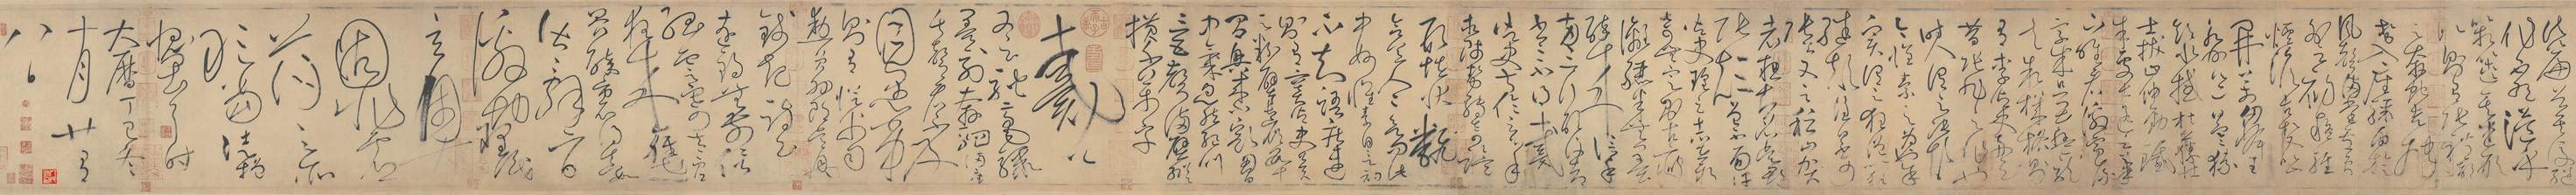 其後繼
作不絕溢乎
箱篋其述形
似則有張禮部
云奔蛇走虺
勢入座驟雨旋
風聲滿堂盧員
外云初疑輕煙
澹古松又似山
開萬仞峰王
永州邕曰寒猿
飲水撼枯藤壯
士拔山伸勁鐵
朱處士遙云筆
下唯看激電流
字成只畏盤龍
走敘機格則
有李御史舟云
昔張旭之作也
時人謂之張顛
今懷素之為也余
實謂之狂僧以狂
繼顛誰曰不可
張公又云稽山賀
老粗知名吳郡
張顛曾不面許
御史瑤云志在新
奇無定則古瘦
漓纚半無墨
醉來信手兩
三行醒後卻書
書不得戴御
史叔倫云心手
相師勢轉奇詭
形怪狀翻
合宜人人欲問此
中妙懷素自言初
不知語疾迅
則有竇御史冀
云粉壁長廊數十
間興來小豁胸
中氣忽然絕叫
三五聲滿壁縱
橫千萬字
戴公
又云馳毫驟
墨列奔駟滿座
失聲看不及
目愚劣
則有從父司
勳員外郎吳興
錢起詩云
遠錫無前侶
孤雲寄太虛
狂來輕世
界醉裏得真如
皆辭旨
激切理識
玄奧
固非虛
蕩之所
敢當徒增
愧畏耳時
大曆丁巳冬
十月廿有
八日